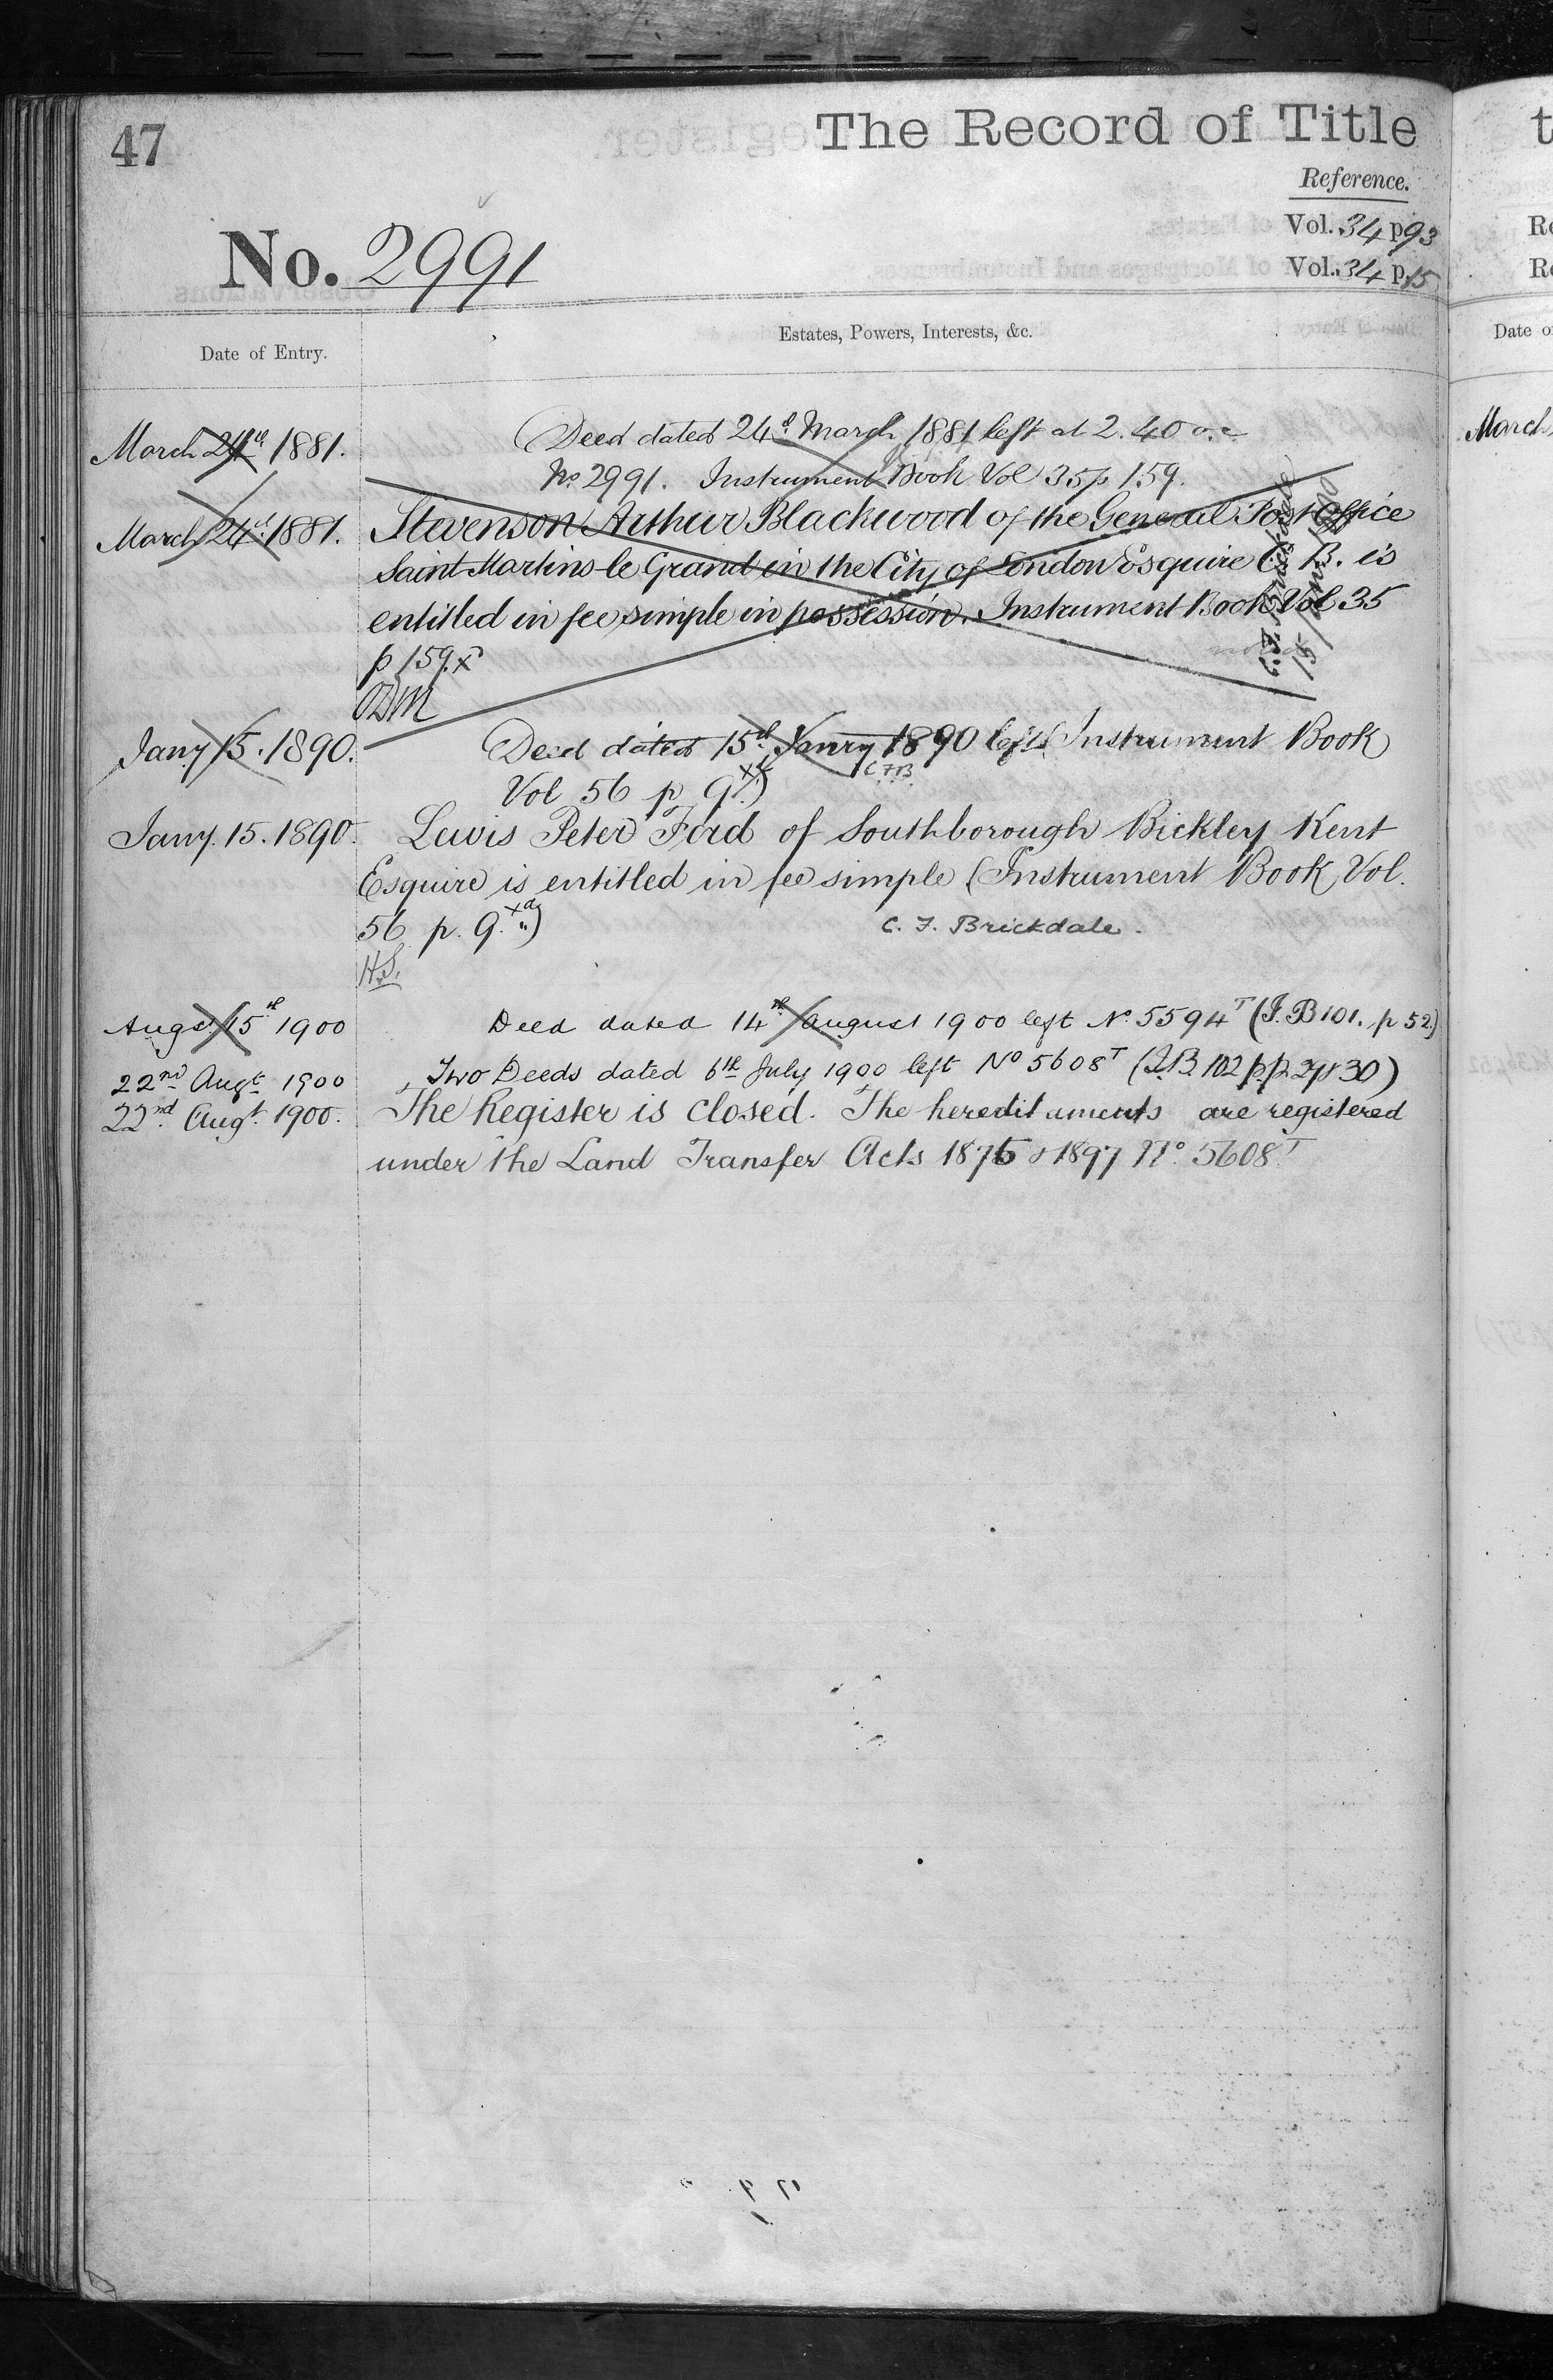 47
The Record of Title
Reference.
Vol. 34 p 93
Vol. 34 p. 15
No. 2991
Date of Entry.
Estates, Powers, Interests, &c.
March 24th 1881. Deed dated 24th March 1881 left at 2.40
No 2991. Instrument Book Vol 35 p 159.
March 24th 1881. Stevenson Arthur Blackwood of the General Post Office
Saint Martins le Grand in the City of London Esquire C. B. is
entitled in fee simple in possession. Instrument Book Vol 35
p 159. x
C. F. Brickdale
15 Jany 1890
Jany 15. 1890. Deed dated 15th Janry 1890 left (Instrument Book
Vol 56 p 9 )
C F B.
Jany. 15. 1890. Lewis Peter Ford of Southborough Bickley Kent
Esquire is entitled in fee simple (Instrument Book Vol.
56 p. 9. )
C. F. Brickdale.
H.S.
Augst 15th 1900 Deed dated 14th August 1900 left No. 5594T (I. B 101. p 52)
22nd Augt 1900 Two Deeds dated 6th July 1900 left No 5608T (I.B. 102 pp. 29 & 30)
22nd Augt. 1900. The Register is closed. The hereditaments are registered
under the Land Transfer Acts 1875 & 1897 No. 5608T
t
Re
Re
Date o
March